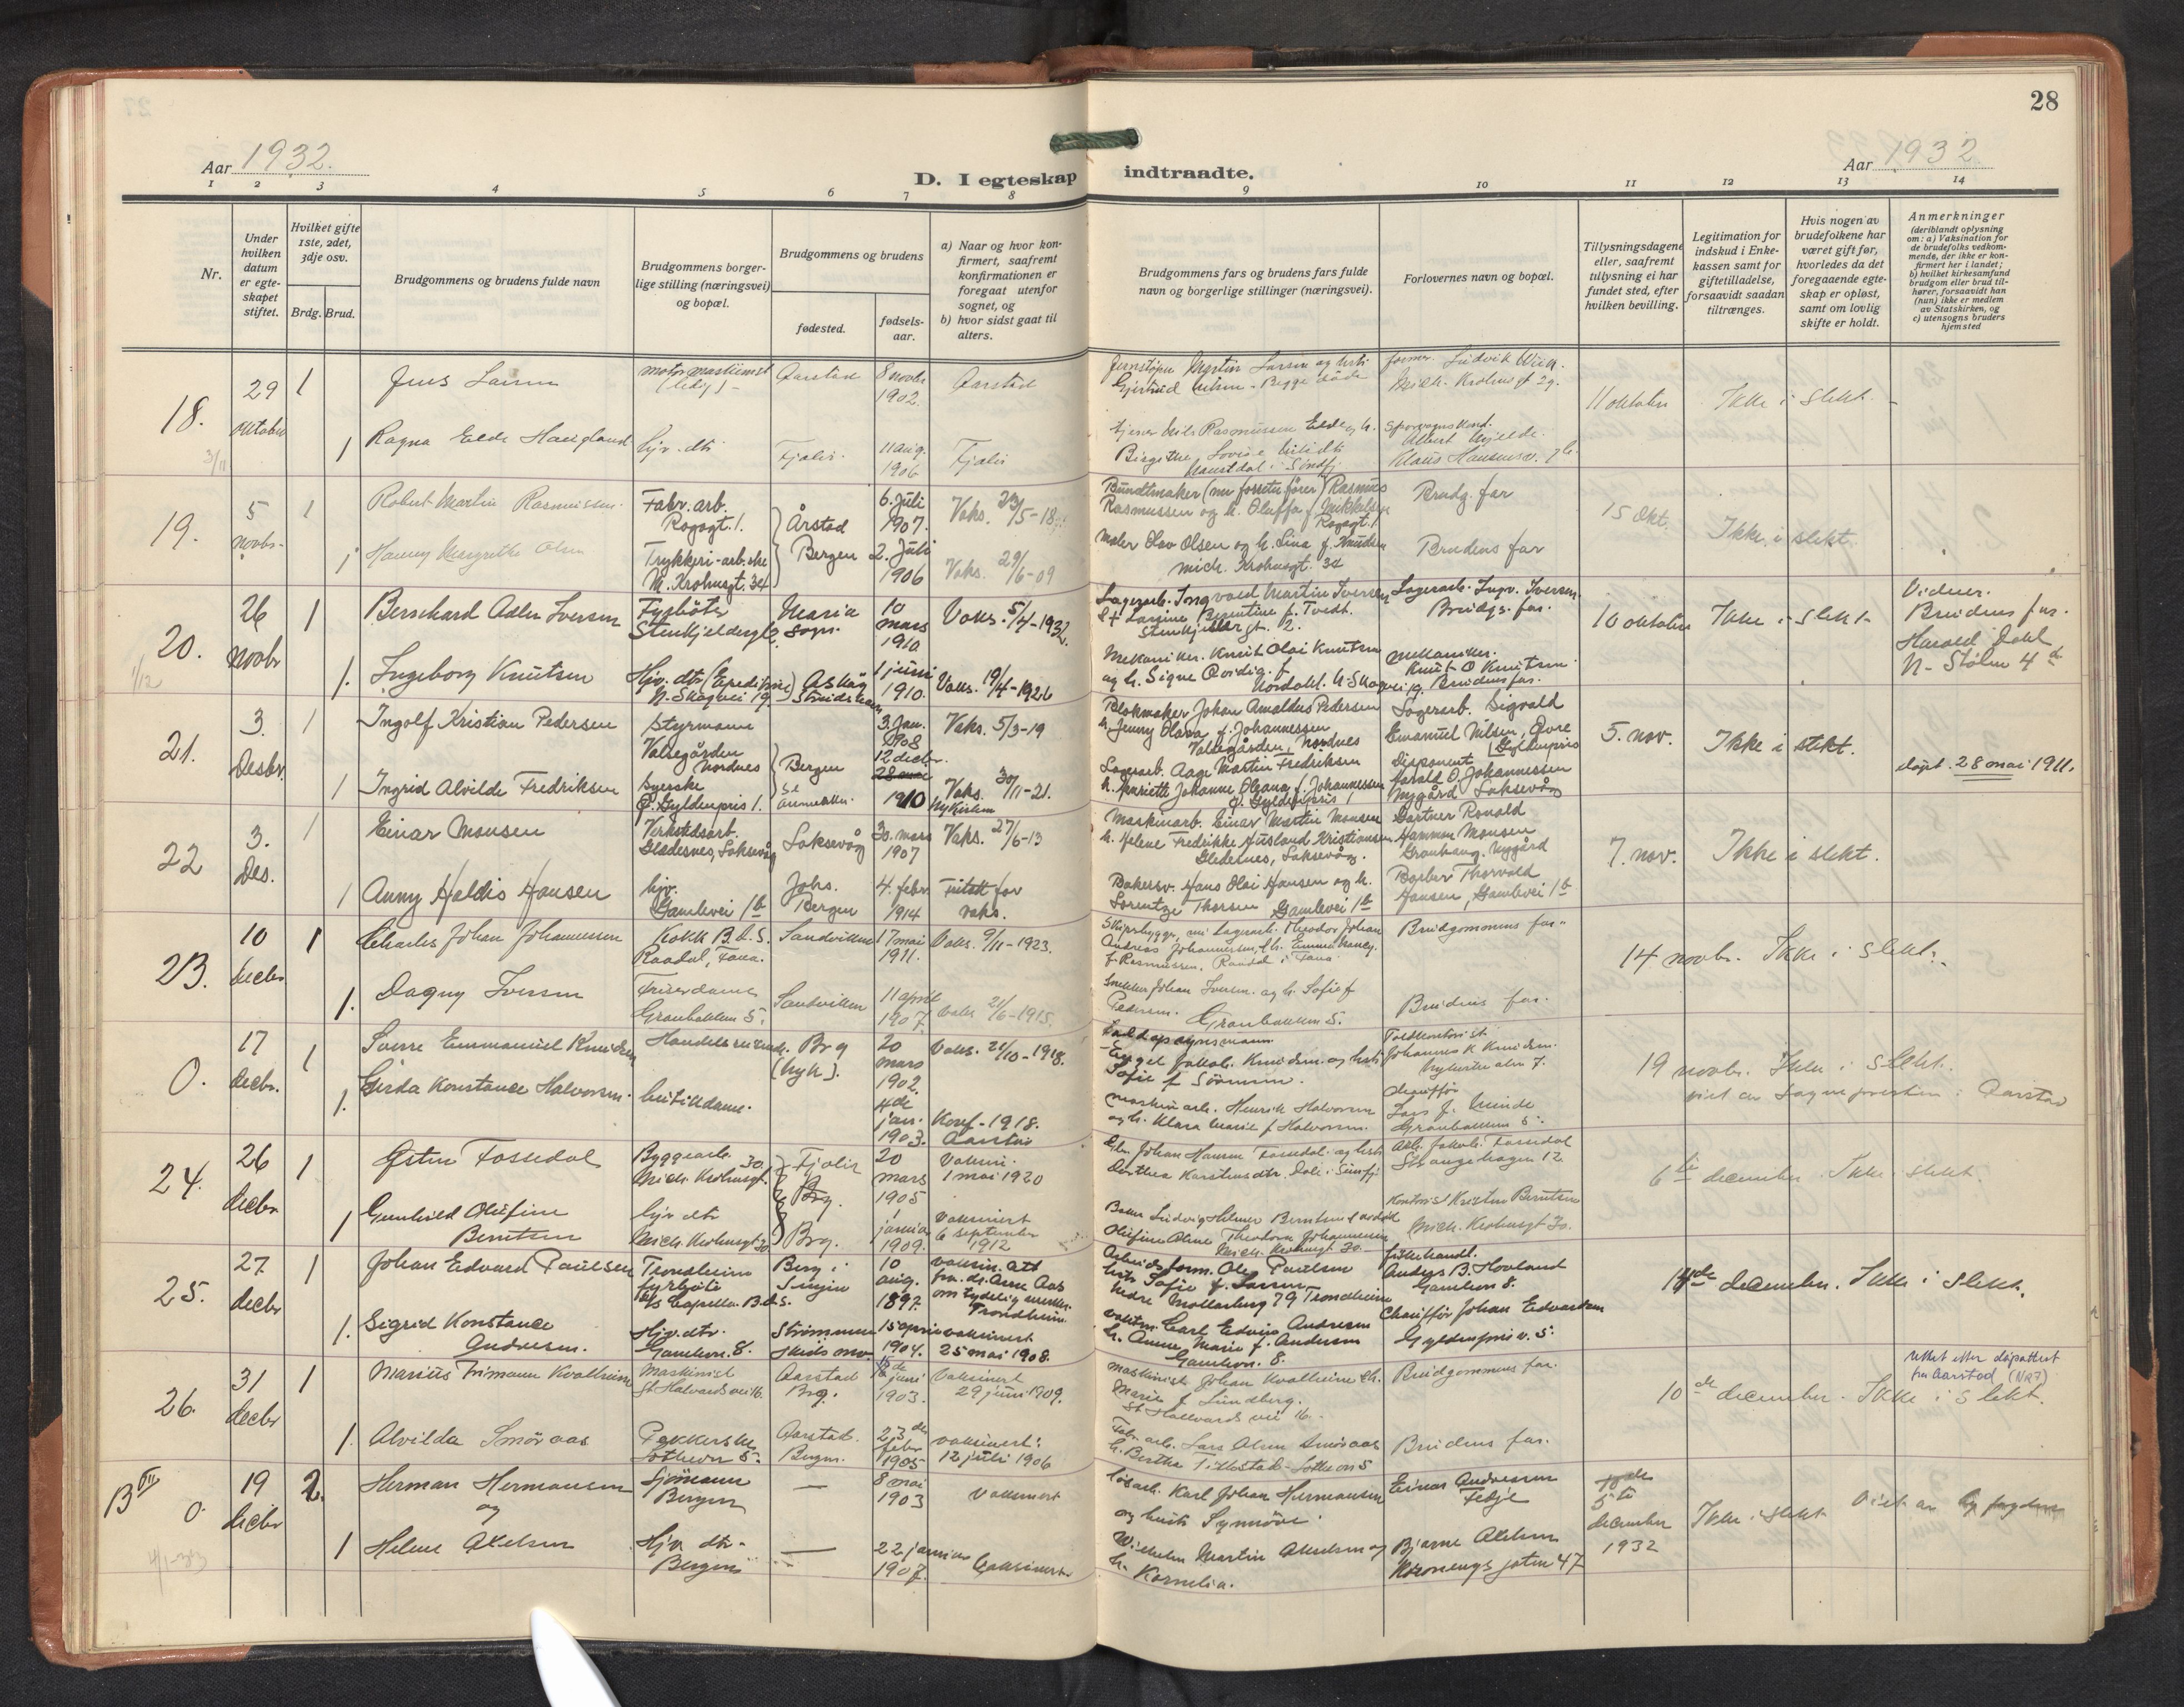 28
Aar 1932.
D. I egteskap indtraadte.
Aar 1932
1 2 3 4 5 6 7 8 9 10 11 12 13 14
Nr.
Under hvilken datum er egteskapet stiftet.
Hvilket gifte 1ste, 2det, 3dje osv.
Brdg. Brud.
Brudgommens og brudens fulde navn
Brudgommens borgerlige stilling (næringsvei) og bopæl.
Brudgommens og brudens
fødested.
fødselsaar.
a) Naar og hvor konfirmert, saafremt konfirmationen er foregaat utenfor sognet, og
b) hvor sidst gaat til alters.
Brudgommens fars og brudens fars fulde navn og borgerlige stillinger (næringsvei).
Forlovernes navn og bopæl.
Tillysningsdagene eller, saafremt tillysning ei har fundet sted, efter hvilken bevilling.
Legitimation for indskud i Enkekassen samt for giftetilladelse, forsaavidt saadan tiltrænges.
Hvis nogen av brudefolkene har været gift før, hvorledes da det foregaaende egteskap er opløst, samt om lovlig skifte er holdt.
Anmerkninger
(deriblandt oplysning om: a) Vaksination for de brudefolks vedkommende, der ikke er konfirmert her i landet; b) hvilket kirkesamfund brudgom eller brud tilhører, forsaavidt han (hun) ikke er medlem av Statskirken, og c) utensogns bruders hjemsted
18. 29 oktober 1 Jens Larsen motormaskinist (ledig) Aarstad 8 novbr 1902. Aarstad
Martin Larsen og hustr. Gjertrud Begge døde
Ludvik Wiig. Mich. Krohns gt 29.
11 oktober Ikke i slekt.
3/11
1 Ragna Eelde Haugland hjv. dtr Fjaler 11 aug. 1906 Fjaler
Nils Rasmussen Eelde og h. Birgithe Lovise Nilsdtr i Søndfj.
Sporvognskond. Albert
19. 5 novbr. 1 Robert Martin Rasmussen Fabr. arb. Rogagt. 1. Årstad 6. juli 1907. Vaks. 23/5-18
Bundtmaker (nu forretn.fører) Rasmus Rasmussen og h. Oluffa f. Mikkelsen Rogagt. 1
Brudg. far
15 Okt. Ikke i slekt.
1 Hanny Margrethe Olsen Trykkeri-arb.ske M. Krohnsgt. 34 Bergen 2. juli 1906 Vaks. 29/6-09
Maler Olav Olsen og h. Lina f. Knudsen Mich. Krohnsgt. 34
Brudens far
20. 26 novbr 1 Bernhard Adler Iversen Fyrbøter Stenkjeldergt 2. Maria Sogn. 10 mars 1910 Vaks. 5/4-1932.
Lagerarb. Ingvald Martin Iversen Berntine f. Tvedt. Stenkjellergt. 2.
Lagerarb. Ingv. Iversen Brudgs. far.
10 oktober Ikke i slekt
Vidner. Brudens far. Harald Dahl N-Stølen 4 d
1/12
1. Ingeborg Knutsen Hjv. dtr N. Skogvei 19 Askøy Strudshavn 1 juni 1910. Vaks. 19/4-1926
Mekaniker. Knut Olai Knutsen og h. Signe f. Nordahl. N. Skogvei 19.
Mekaniker. Knut O Knutsen Brudens far.
21. 3. Desbr. 1 Ingolf Kristian Pedersen Styrmann Valsegården Nordnes Bergen 3. Jan. 1908 Vaks. 5/3-19
Blokmaker Johan Arnoldus Pedersen h. Jenny Olava f. Johannessen Valsegården, Nordnes
Lagerarb. Sigvald Emanuel Nilsen, Øvre Gyldenpris
5. nov. Ikke i slekt.
1 Ingrid Alvilde Fredriksen Syerske Ø. Gyldenpris 1. 12 decbr. 28 mai 1910 Vaks. 30/11-21. Nykirken
Lagerarb. Aage Martin Fredriksen h. Henriette Johanne Oleana f. Johannessen Ø. Gyldenpris 1
Disponent Harald O. Johannessen Nygård Laksevåg
døpt. 28 mai 1911.
22 3. Des. 1 Einar Monsen Verkstedsarb. Gladesnes, Laksevåg Laksevåg 30. mars 1907 Vaks. 27/6-13
Maskinarb. Einar Martin Monsen h. Helene Fredrikke Kristiansen Gledesnes, Laksevåg.
Gartner Ronald Hammen Monsen Granhaug. Nygård
7. nov. Ikke i slekt.
1 Anny Haldis Hansen hjv. Gamlevei 1b Johs. Bergen 4. febr. 1914 Fritatt for vaks.
Bakersv. Hans Olai Hansen og h. Lorentze Thorsen Gamlevei 1b
Barber Thorvald Hansen, Gamlevei 1b
23. 10 decbr 1 Charles Johan Johannessen Kokk B.d.S. Raadal, Fana. Sandviken 17 mai 1911. Vaks. 9/11-1923.
Skipsbygger, nu Lagerarb. Theodor Johan Andreas Johannessen, f. Rasmussen. Raadal i Fana
Brudgommens far
14 novbr. Ikke i slekt.
1. Dagny Iversen Frisørdame Granbakken 5. Sandviken 11 april 1907. vaks 21/6-1915.
Snekker Johan Iversen og h. Sofie f Pedersen. Granbakken 5.
Brudens far.
0. 17 decbr. 1 Sverre Emmanuel Knudsen Handelsreisende. Brg (Nyk). 20 mars 1902. Vaks. 21/10-1918.
Engel Jakob. Knudsen og hustr Sofie f Sørensen.
Toldkontorist Johannes K Knudsen.
19 novbr. Ikke i slekt. viet av sognepresten i Aarstad
1. Gerda Konstance Halvorsen. butikkdame. 4de jan. 1903. Konf-1918. Aarstad
Maskinarb. Henrik Halvorsen og h. Klara Marie f Halvorsen.
Chauffør Lars J. Granbakken 5.
24. 26 decbr 1 Østen Fossedal Byggearb. Mich. Krohnsgt. 30. Fjaler 20 mars 1905 vaksin. 1 mai 1920
Johan Hansen Fossedal og hustr Dorthea Karstensdtr. Dale i Sunnfj.
Arb. Jakob. Fossedal Strangehagen 12
6te december. Ikke i slekt.
1 Gunhild Olufine Berntsen hjv dtr Mich. Krohnsgt 30 Brg. 1 januar 1909. vaksinert 6 september 1912
Baker Ludvig Hilmer Berntsen Theodora Johannessen Mich. Krohnsgt 30.
Kontorist Kristen Berntsen Mich. Krohnsgt 30.
25. 27 decbr 1 Johan Edvard Paulsen Trondheim fyrbøter D/s Capella B.d.S. 10 aug. 1897. vaksin. att fra dr. Arne Aas om tydelig merker. Trondheim
Arbeidsform. Ole Paulsen hustr Sofie f. Larsen Nedre Møllenberg 79 Trondheim
fiskehandl. Anders B. Hovland Gamlevn 8.
14de december. Ikke i slekt.
1. Sigrid Konstance Andresen. Hjv. dtr. Gamlevn. 8. Strømmen Skedsmo 15 april 1904. vaksinert 25 mai 1908.
Carl Edvin Andresen h. Anna Marie f. Andersen Gamlevn. 8.
Chauffør Johan Edvardsen Gyldenpris v. 5.
26. 31 decbr 1 Marius Trimann Kvalheim Maskinist St Halvards vei 16. Aarstad Brg. juni 1903. vaksinert 29 juni 1909.
Maskinist Johan Kvalheim & h. Marie f Lundberg. St Hallvards vei 16.
Brudgommens far.
10de december. Ikke i slekt.
rettet etter dåpattest fra Aarstad (No 7)
1. Alvilda Smøraas Pakkerske 5. Aarstad. Bergen. 23de febr 1905 vaksinert: 12 juli 1906
Fabr. arb. Lars Olsen Smøraas h. Bertha
Brudens far.
B VII 0. 19 decbr 2. Herman Hermansen Sjømann Bergen — 8 mai 1903 Vaksinert
og
løsarb. Karl Johan Hermansen og hustr Synnøve.
Einar Andreassen Fedje
5te december 1932
Ikke i slekt Viet av
4/1-33
1 Helene Akelsen Hjv dtr Bergen — 22 januar 1907. Vaksinert
Wilhelm Martin Akselsen og h. Kornelia.
Bjarne Akelsen 47